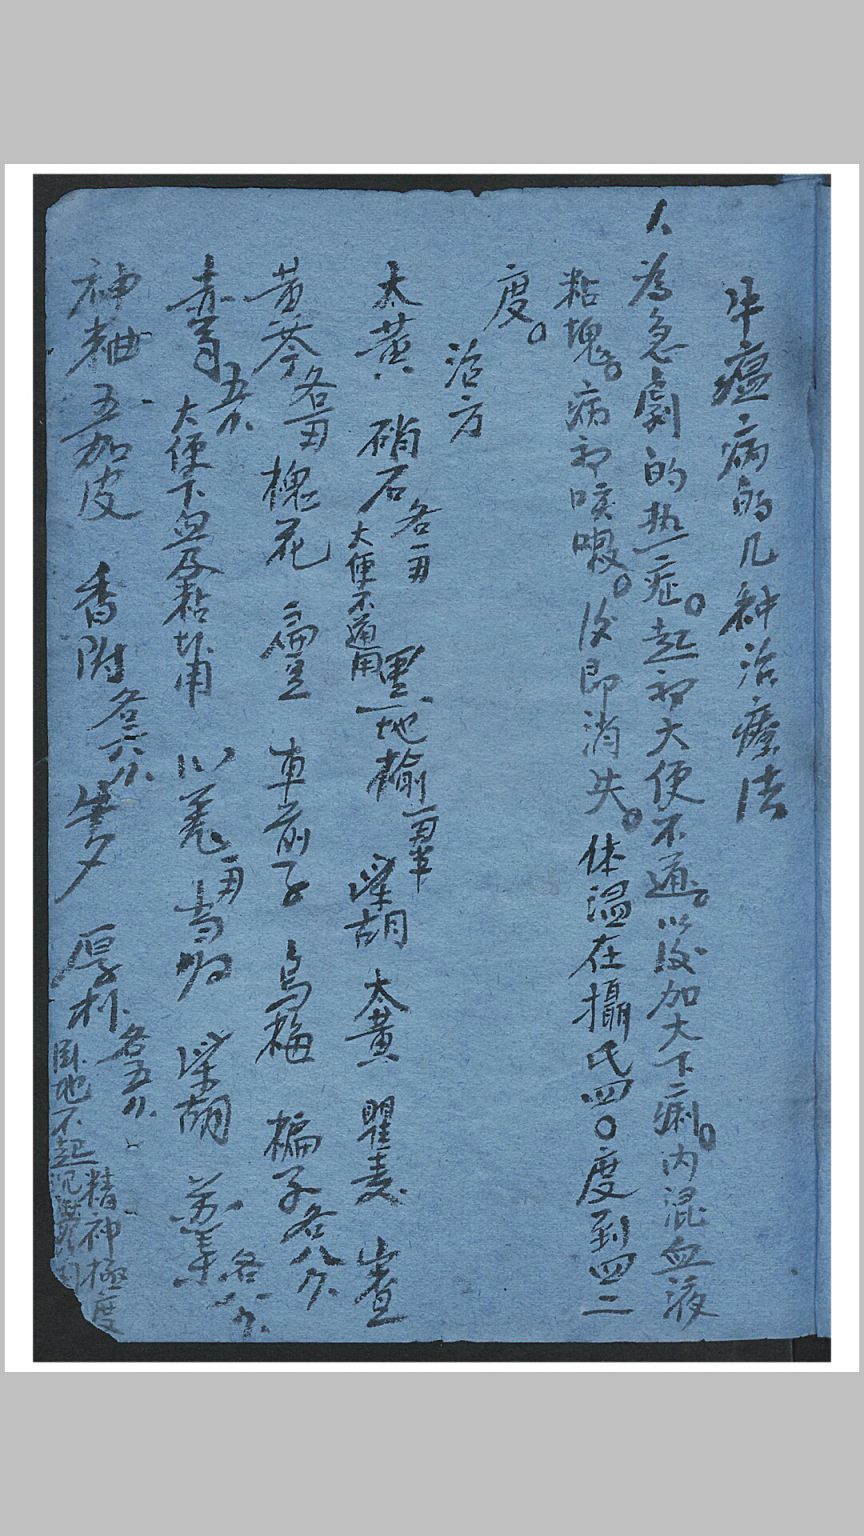 牛瘟病的几种治療法
1、为急劇的热症。起初大便不通。以後加大下痢。内混血液
粘塊。病初咳嗽。後即消失。体温在攝氏四〇度到四二
度。
治方
大黄 硝石各一両 大便不通用 黑地榆一両半 柴胡 大黄 瞿麦 山查
黄芩各一両 槐花 扁豆 車前子 烏梅 楄子各八分
赤芍五分 大便下血及粘 用 川羌一両 当归 柴胡 苏葉各八分
神粬 五加皮 香附各六分 厚朴各五分 卧地不起 精神極度